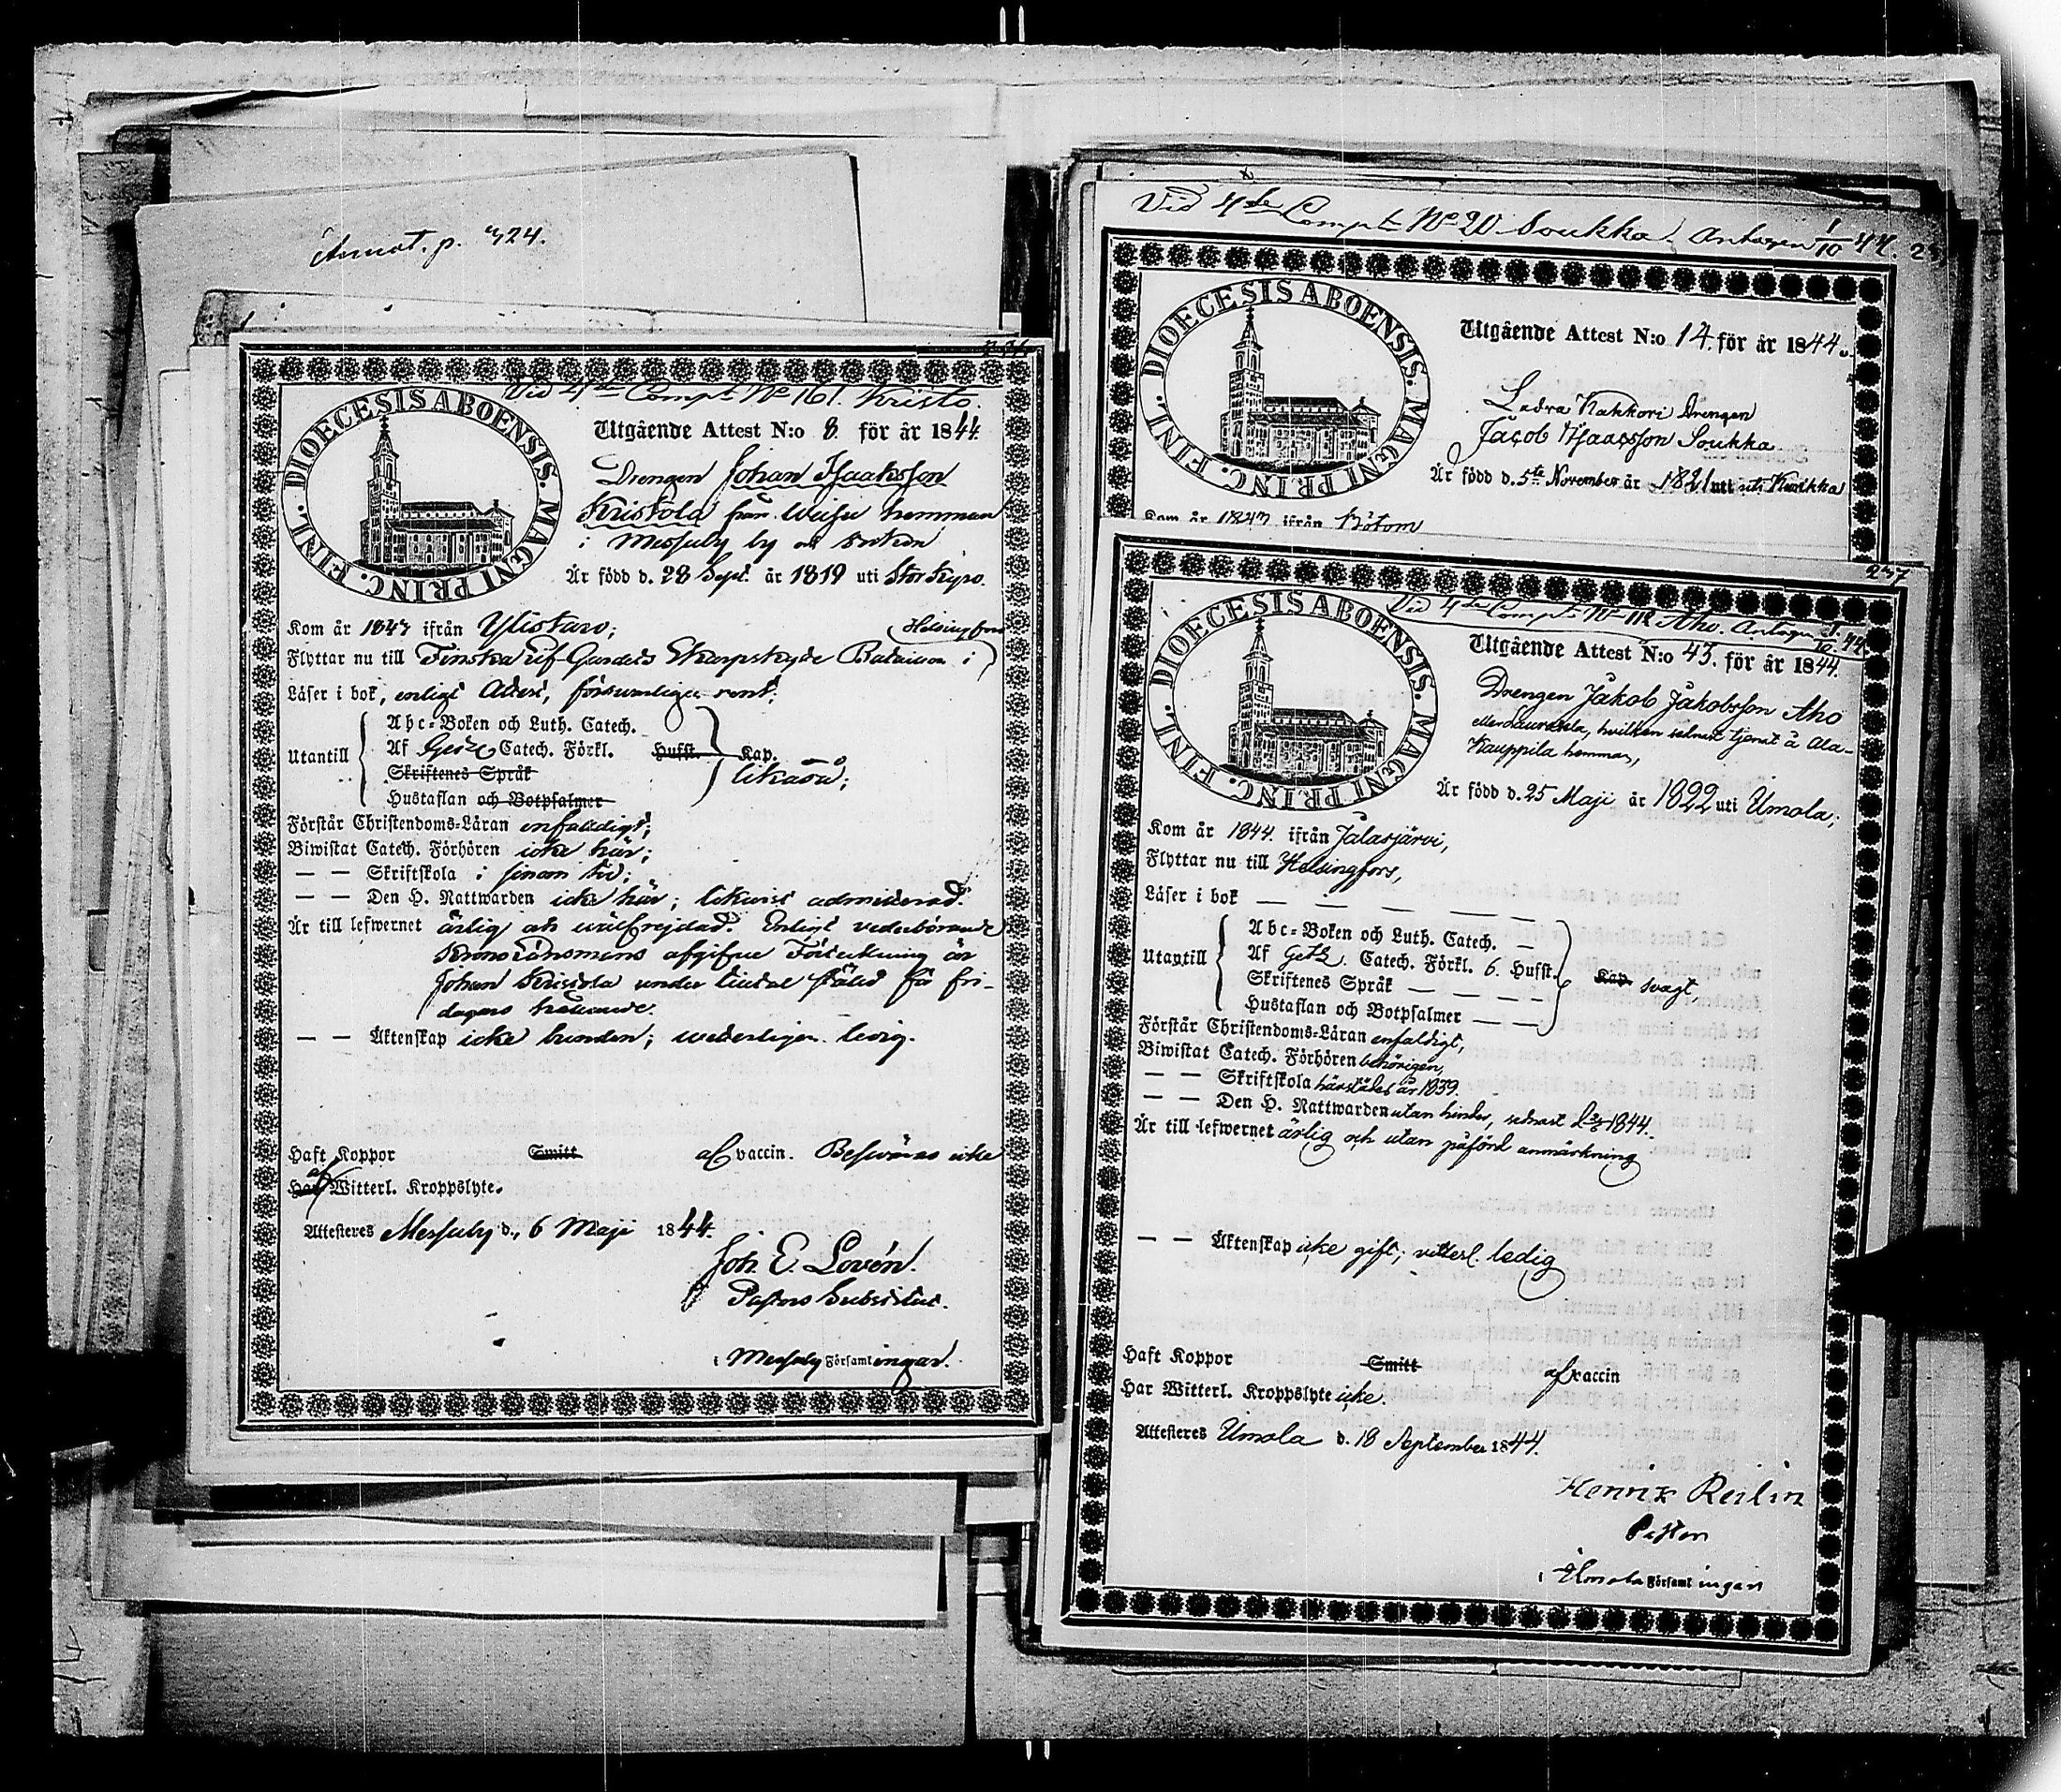 Annot. p. 324.
Vid 4de Comp. No 161. Kristo.
DIOECESIS ABOENSIS. MAGNI PRINC. FINL.
Utgående Attest N:o 8. för år 1844.
Drengen Johan Isaaksson
Kristola från Weisu hemman
i Messuby by och Socken
Är född d. 28 Sept. år 1819 uti Stor Kyro.
Kom år 1843 ifrån Ylistaro;
Helsingfors
Flyttar nu till Finska Lif-Gardets Skarpskytte Bataillon i
Läser i bok, enligt Attest, försvarligen rent;
Abc-Boken och Luth. Catech.
Utantill Af Catech. Förkl. Hufst. Kap.
likaså;
Skriftenes Språk
Hustaflan och Botpsalmer
Förstår Christendoms-Läran enfaldigt;
Biwistat Catech. Förhören icke här;
— — Skriftskola i sinom tid;
— — Den H. Nattwarden icke här; likwist admitterad.
Är till lefwernet ärlig och wälfrejdad. Enligt vederbörande
Krono Länsmans afgifne Försäkring är
Johan Kristola under tiltal stäld för fri-
dagars hållande.
— — Äktenskap icke bunden; wederligen ledig.
Haft Koppor Smitt af vaccin. Beswäras icke
af
Har Witterl. Kroppslyte.
Attesteras Messuby d. 6 Maji 1844.
Joh. E. Lovén.
Pastors Substitut.
i Messuby Församlingar.
Vid 4de Comp. No 20 Soukka. Antagen 1/10 44.
DIOECESIS ABOENSIS. MAGNI PRINC. FINL.
Utgående Attest N:o 14. för år 1844.
Ladra Kakkori Drengen
Jacob Isaacsson Soukka
Är född d. 5te November år 1821 uti
Kom år 1843 ifrån Bötom
237
Vid 4de Comp. No 112 Aho. Antagen 1/10 44.
DIOECESIS ABOENSIS. MAGNI PRINC. FINL.
Utgående Attest N:o 43. för år 1844.
Drengen Jakob Jakobsson Aho
eller Laurikkala, hvilken sednast tjenat å Ala-
Kauppila hemman,
Är född d. 25 Maji år 1822 uti Ilmola;
Kom år 1844. ifrån Jalasjärvi,
Flyttar nu till Helsingfors,
Läser i bok — — — — —
Abc-Boken och Luth. Catech. —
Utantill Af Getz. Catech. Förkl. 6. Hufst. Kap. svagt,
Skriftenes Språk — — — —
Hustaflan och Botpsalmer — —
Förstår Christendoms-Läran enfaldigt,
Biwistat Catech. Förhören behörigen,
— — Skriftskola härstädes år 1839.
— — Den H. Nattwarden utan hinder, sednast d. 1844.
Är till lefwernet ärlig och utan påförd anmärkning
— — Äktenskap icke gift; vitterl. ledig
Haft Koppor Smitt af vaccin
Har Witterl. Kroppslyte icke.
Attesteras Ilmola d. 18 September 1844.
Henrik Reilin
Pastor
i Ilmola Församlingar